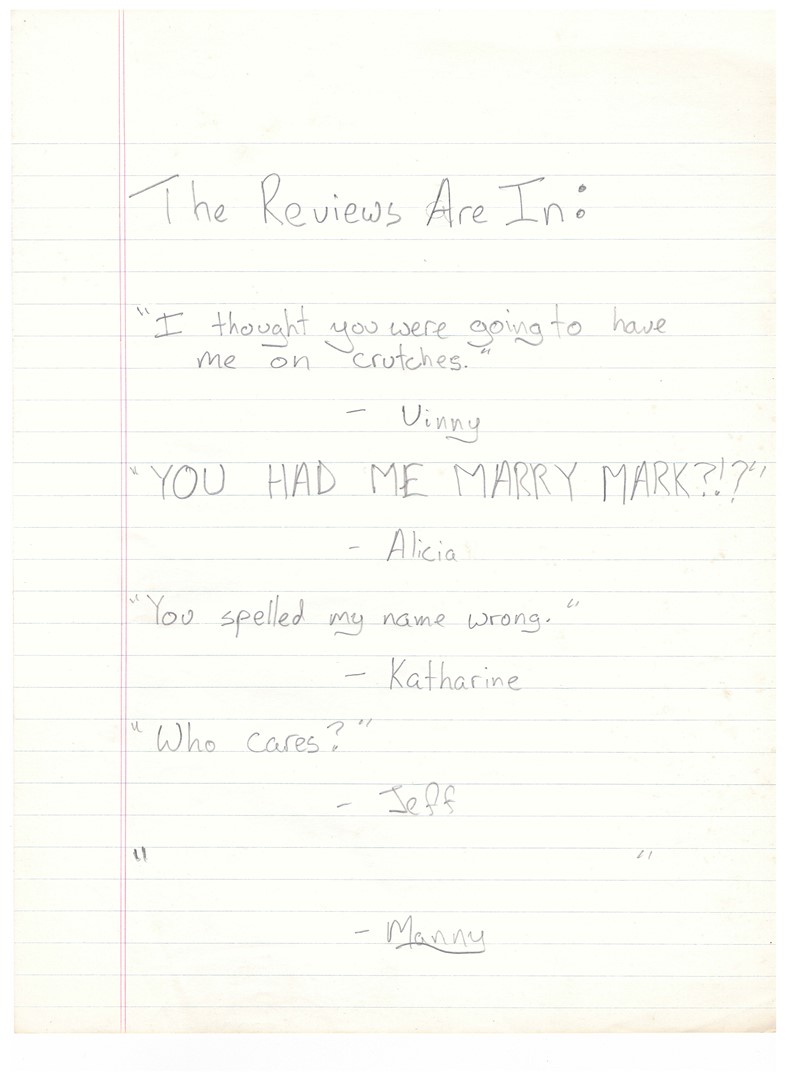 The Reviews Are In:
"I thought you were going to have
me on crutches."
- Vinny
"YOU HAD ME MARRY MARK?!?"
- Alicia
"You spelled my name wrong."
- Katharine
"Who cares?"
- Jeff
" "
- Manny